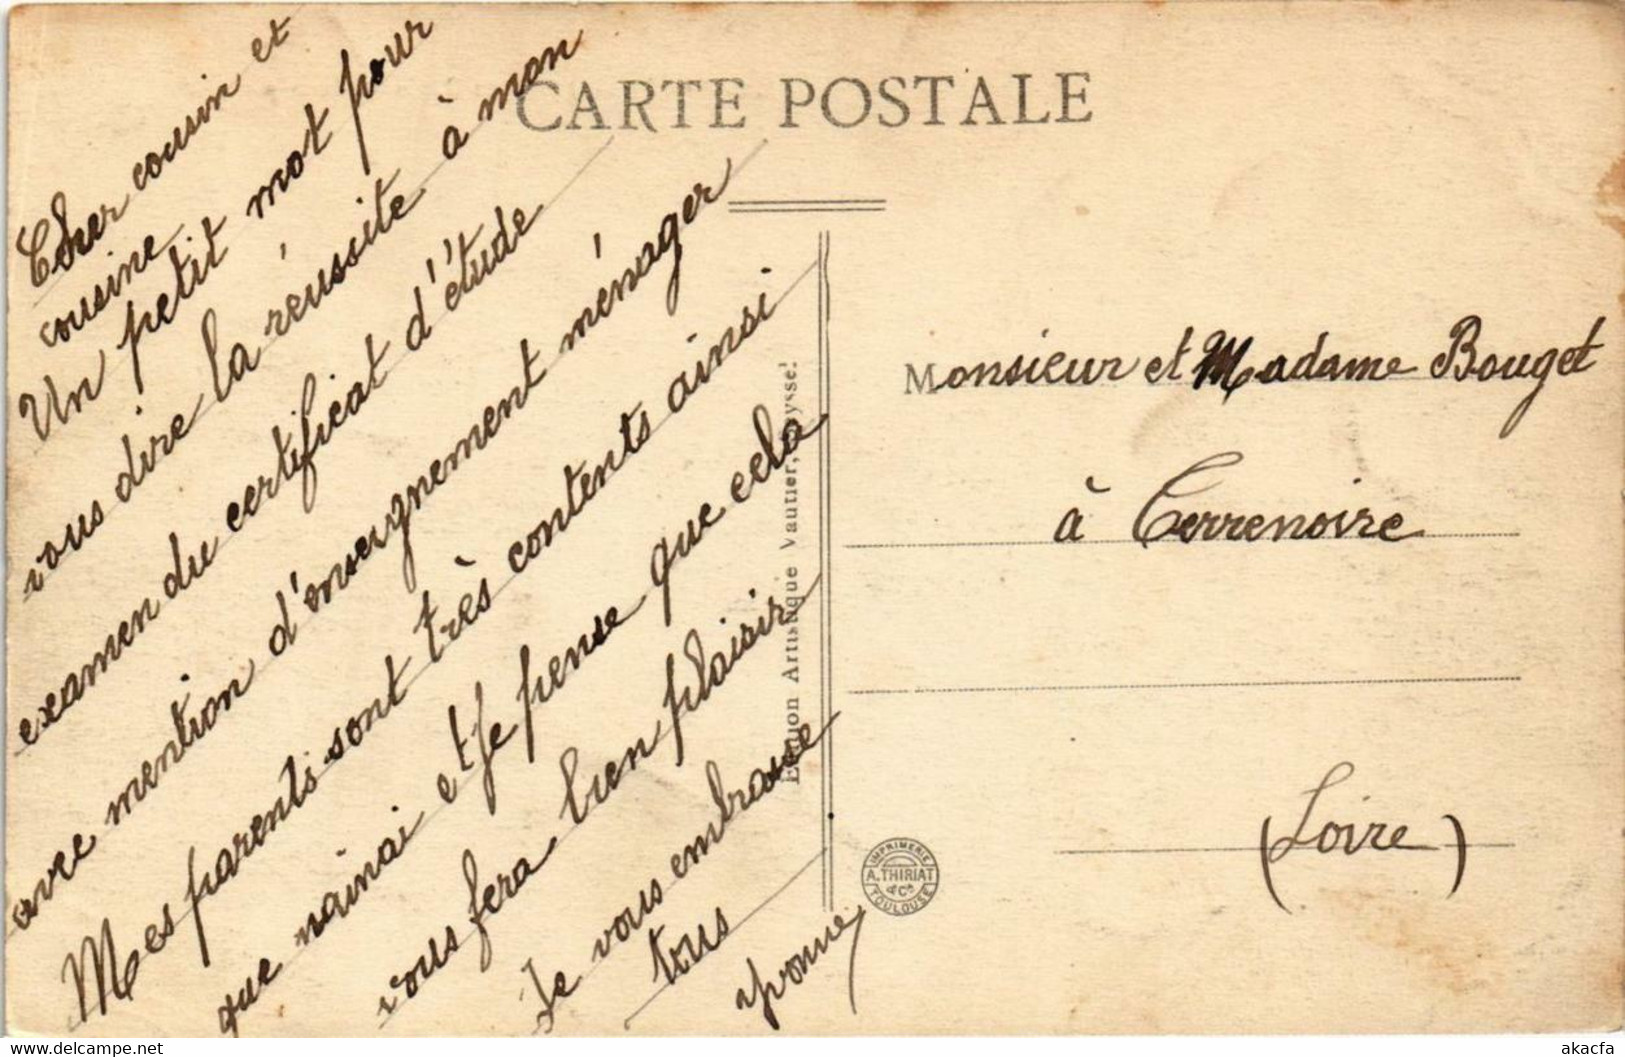 CARTE POSTALE
Cher cousin et
cousine
Un petit mot pour
vous dire la réussite à mon
examen du certificat d'étude
avec mention d'enseignement ménager
Mes parents sont très contents ainsi
que nainai et je pense que cela
vous fera bien plaisir
Je vous embrasse
tous
Yvonne
Monsieur et Madame Bouget
à Terrenoire
(Loire)
Artistique Vautier,
IMPRIMERIE
A. THIRIAT
& Cº
TOULOUSE
akacfa